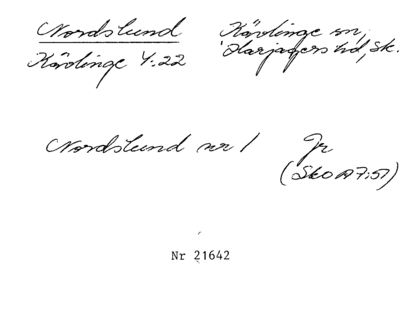 Nordslund Kävlinge sn,
Kävlinge 4:22 Harjagers hd, Sk.
Nordslund nr 1 Jr
(Sko A 7:51)
Nr 21642